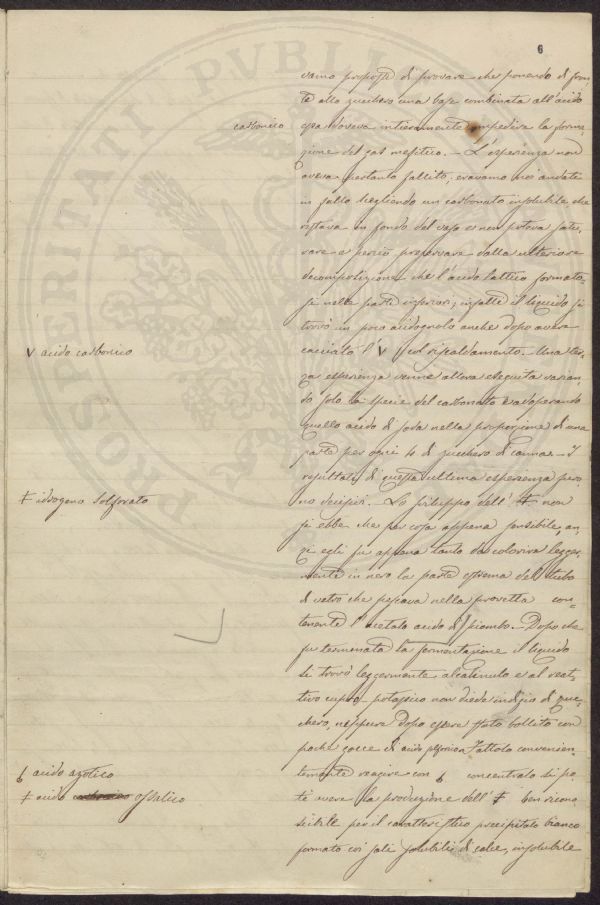 6
vamo proposti di provare che ponendo di fron-
te allo zucchero una base combinata all'acido
carbonico
essa doveva intieramente impedire la forma-
zione del gas mefitico. — L'esperienza non
aveva pertanto fallito, eravamo noi andati
in fallo scegliendo un carbonato insolubile che
restava in fondo del vaso e non poteva satu-
rare e perciò preservare dalla ulteriore
decomposizione che l'acido lattico formato-
si nelle parti superiori; infatti il liquido si
trovò un poco acidognolo anche dopo avere
V acido carbonico
cacciato l' V col riscaldamento. — Una ter-
za esperienza venne allora eseguita varian-
do solo la specie del carbonato e adoperando
quello acido di soda nella proporzione di una
parte per ogni 4 di zucchero di canna. — I
resultati di questa ultima esperienza furo-
no decisivi. Lo sviluppo dell' ≠ non
≠ idrogeno solforato
si ebbe che per cosa appena sensibile, an-
zi egli fu appena tanto da colorire legger-
mente in nero la parte estrema del tubo
di vetro che pescava nella provetta con-
tenente l'acetato acido di piombo. — Dopo che
fu terminata la fermentazione il liquido
si trovò leggermente alcalinulo e al reat-
tivo cupro potassico non diede indizio di zuc-
chero, neppure dopo essere stato bollito con
poche gocce di acido solforico. Fattolo convenien-
6 acido azotico
temente reagire con 6 concentrato si po-
≠ acido carbonico ossalico
tè avere la produzione dell' ≠ ben ricono-
scibile per il caratteristico precipitato bianco
formato coi sali solubili di calce, insolubile
PROSPERITATI PVBLI